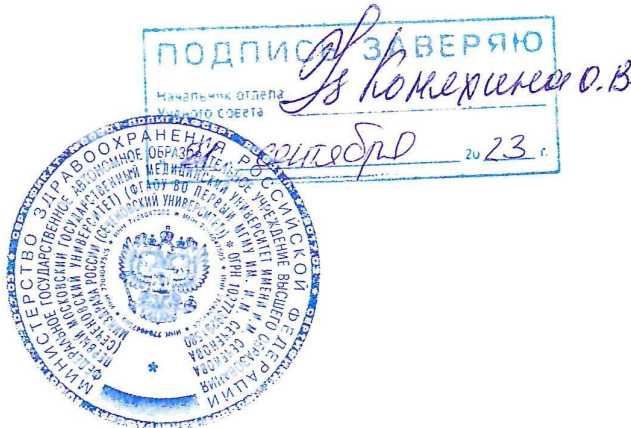 ПОДПИСЬ ЗАВЕРЯЮ
Начальник отдела
Ученого совета
Конярина О.В
сентября 2023 г.
МИНИСТЕРСТВО ЗДРАВООХРАНЕНИЯ РОССИЙСКОЙ ФЕДЕРАЦИИ
ФЕДЕРАЛЬНОЕ ГОСУДАРСТВЕННОЕ АВТОНОМНОЕ ОБРАЗОВАТЕЛЬНОЕ УЧРЕЖДЕНИЕ ВЫСШЕГО ОБРАЗОВАНИЯ
ПЕРВЫЙ МОСКОВСКИЙ ГОСУДАРСТВЕННЫЙ МЕДИЦИНСКИЙ УНИВЕРСИТЕТ ИМЕНИ И.М. СЕЧЕНОВА
(СЕЧЕНОВСКИЙ УНИВЕРСИТЕТ) (ФГАОУ ВО ПЕРВЫЙ МГМУ ИМ. И.М. СЕЧЕНОВА
МИНЗДРАВА РОССИИ (СЕЧЕНОВСКИЙ УНИВЕРСИТЕТ) * ОГРН